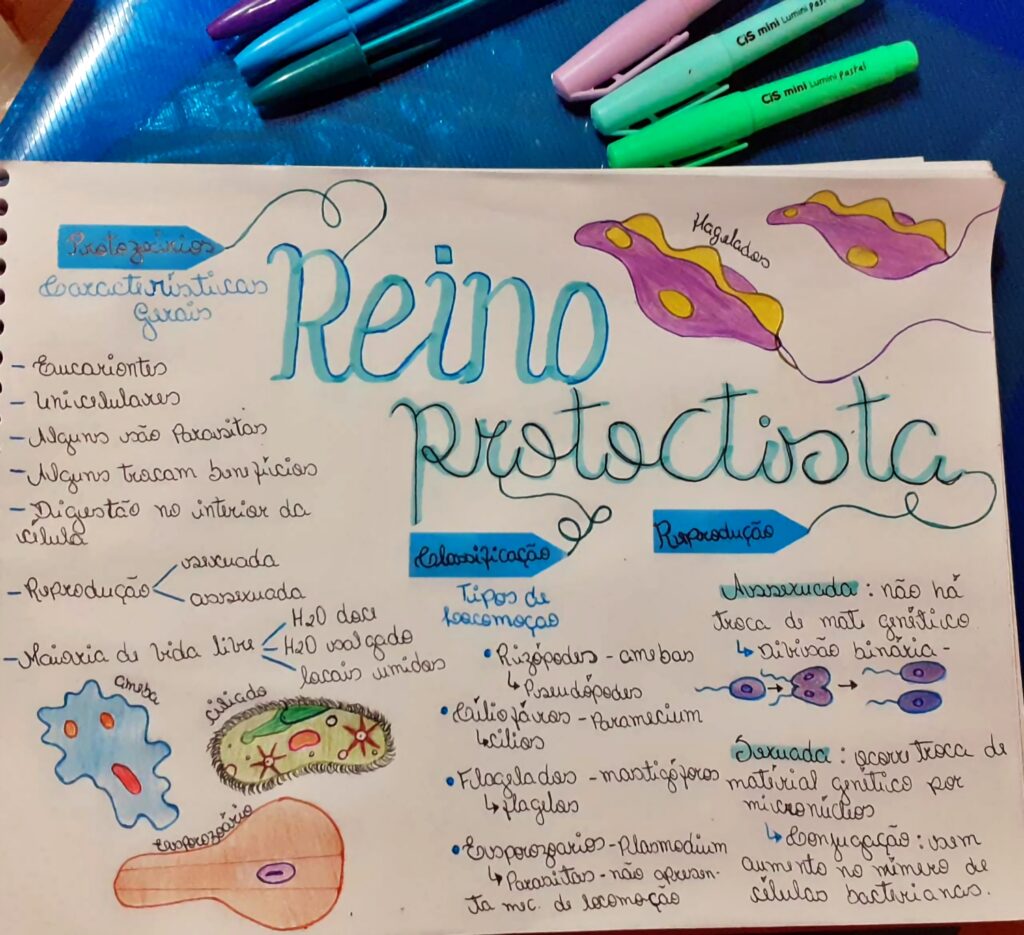 CiS mini Lumini pastel
CiS mini Lumini pastel
Protozoários
Características
Gerais
- Eucariontes
- Unicelulares
- Alguns são Parasitas
- Alguns trocam benefícios
- Digestão no interior da
célula
- Reprodução
sexuada
assexuada
- Maioria de vida livre
H2O doce
H2O salgado
locais umidos
ameba
ciliado
Esporozoário
Reino
protoctista
flagelados
Classificação
Tipos de
Locomoção
• Rizópodes - amebas
↳ Pseudópodes
• Ciliofáros - Paramecium
↳ cílios
• Flagelados - mastigóforos
↳ flagelos
• Esporozoarios - Plasmodium
↳ Parasitas - não apresen-
ta mec. de locomoção
Reprodução
Assexuada : não há
troca de mat. genético
↳ Divisão binária -
Sexuada : ocorre troca de
material genético por
micronúcleos
↳ Conjugação : sem
aumento no número de
células bacterianas.